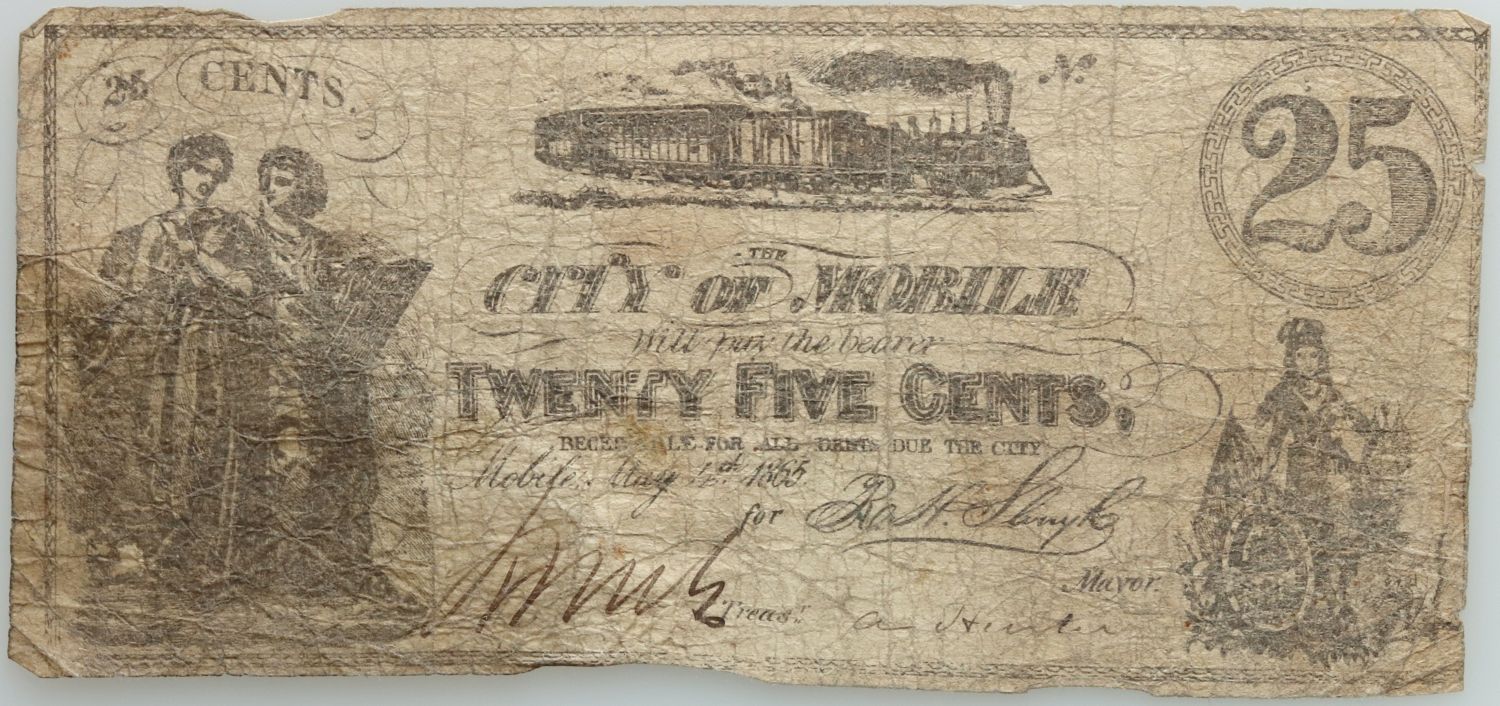 25 CENTS.
No.
25
THE
CITY OF MOBILE
Will pay the bearer
TWENTY FIVE CENTS,
RECEIVABLE FOR ALL DEBTS DUE THE CITY
Mobile, May 1865
for
Mayor.
Treasr.
a Hunter